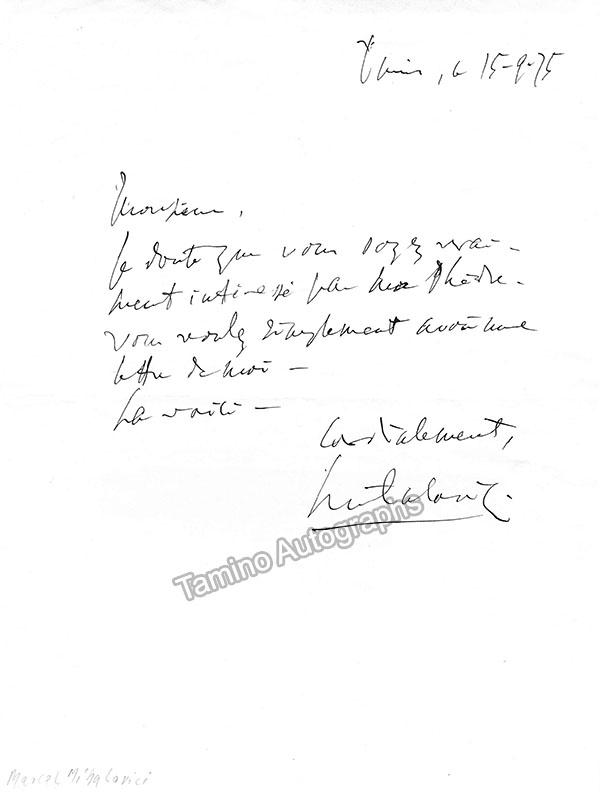 Paris, le 15-9-75
Monsieur,
Je doute que vous soyez vrai-
ment intéressé par ma Phèdre.
Vous voulez simplement avoir une
lettre de moi —
La voici —
Cordialement,
Mihalovici.
Tamino Autographs
Marcel Mihalovici